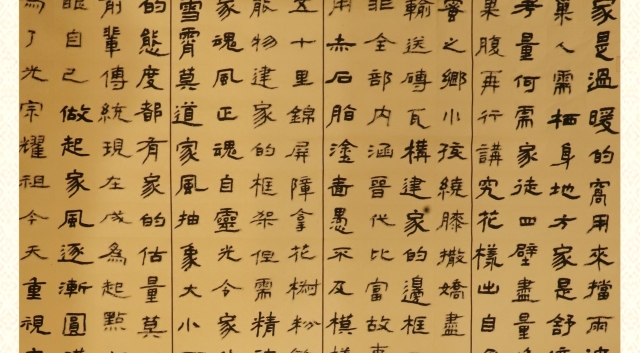 家是溫暖的窩用來擋雨
巢人需栖身地方家是舒
考量何需家徒四壁盡量
果腹再行講究花樣出自
蜜之鄉小孩繞膝撒嬌盡
輸送磚瓦構建家的邊框
非全部內涵晉代比富故
用赤石脂塗嗇愚不及模
五十里錦屏障拿花椒粉
能物建家的框架但需精
家魂風正魂自靈光令家
雪霄莫道家風抽象大小
的態度都有家的估量莫
前輩傳統現在成為起點
眼自己做起家風逐漸圓
為了光宗耀祖今天重視